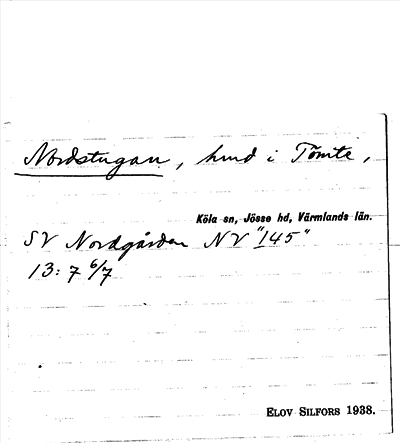 Nordstugan, hmd i Tömte,
Köla sn, Jösse hd, Värmlands län.
SV Nordgården NV "145"
13: 7 6/7
ELOV SILFORS 1938.